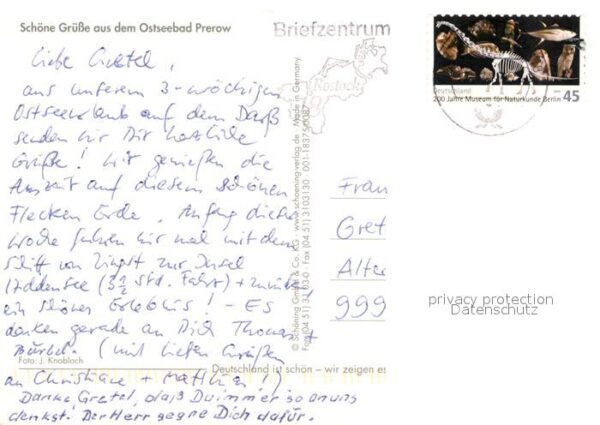 Schöne Grüße aus dem Ostseebad Prerow
Liebe Gretel,
aus unserem 3-wöchigen
Ostseeurlaub auf dem Darß
senden wir Dir herzliche
Grüße! Wir genießen die
Auszeit auf diesem schönen
Flecken Erde. Anfang dieser
Woche fuhren wir mal mit dem
Schiff von Zingst zur Insel
Hiddensee (3½ Std. Fahrt) + zurück
ein schönes Erlebnis! - Es
denken gerade an Dich Thomas +
Bärbel. (mit lieben Grüßen
an Christiane + Matthias!)
Danke Gretel, daß Du immer so an uns
denkst! Der Herr segne Dich dafür.
Foto: J. Knobloch
Deutschland ist schön – wir zeigen es
© Schöning GmbH & Co. KG · www.schoening-verlag.de · Made in Germany
Fon (04 51) 3103-0 · Fax (04 51) 3103130
Briefzentrum
Rostock
Deutschland
200 Jahre Museum für Naturkunde Berlin
45
Frau
Gret
Alte
999
privacy protection
Datenschutz